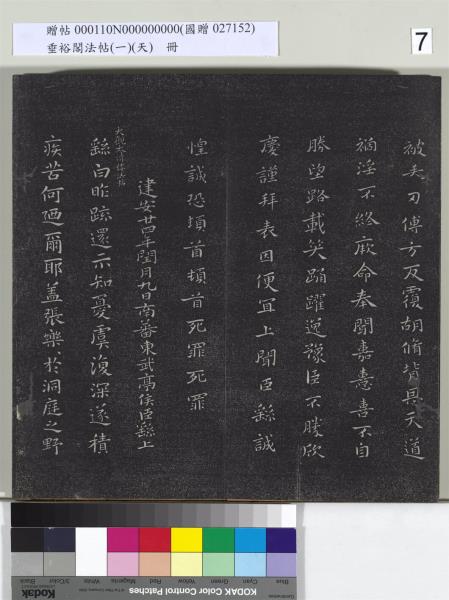 贈帖 000110N000000000(國贈 027152)
垂裕閣法帖(一)(天) 冊
7
被矢刃傅方反覆胡脩背具天道
禍淫不終厥命奉聞嘉憙喜不自
勝望路載笑踊躍逸豫臣不勝欣
慶謹拜表因便宜上聞臣繇誠
惶誠恐頓首頓首死罪死罪
建安廿四年閏月九日南蕃東武亭侯臣繇上
繇白昨疏還示知憂虞復深遂積
疾苦何迺爾耶蓋張樂於洞庭之野
Blue
Cyan
Green
Yellow
Red
Magenta
White
3/Color
Black
KODAK Color Control Patches
Kodak